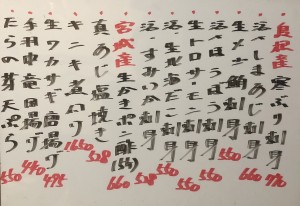 島根産 寒ぶり刺身 770
活〆しまあじ刺身 660
生メバチ鮪刺身
生トロサーモン刺身 550
活・生水だこ刺身 550
活・すみいか刺身 528
宮城産 生かきポン酢(5ケ) 660
真あじ塩焼き 528
キンキ煮付 1650
生ワカサギ唐揚げ 495
手羽中竜田揚げ 440
たらの芽天ぷら 550